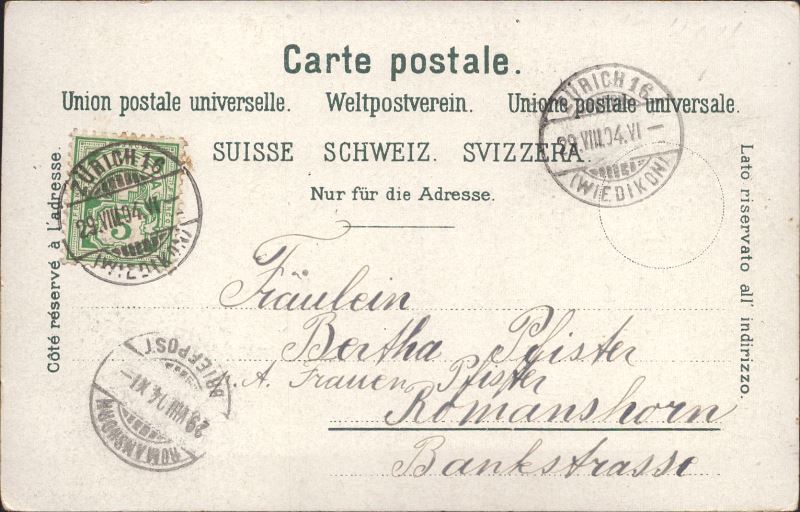 Carte postale.
Union postale universelle. Weltpostverein. Unione postale universale.
SUISSE SCHWEIZ. SVIZZERA.
Nur für die Adresse.
Côté réservé à l'adresse.
Lato riservato all' indirizzo.
ZÜRICH 16
29.VIII.04.VI–
(WIEDIKON)
ZÜRICH 16
29.VIII.04.VI
(WIEDIKON)
5
Fräulein
Bertha Pfister
A. Frauen Pfister
Romanshorn
Bankstrasse
BRIEFPOST
29.VIII.04.XI–
ROMANSHORN